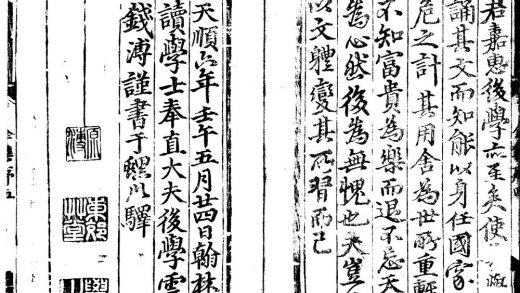 君嘉惠後學亦至矣使
誦其文而知能以身任國家
危之計其用舍為世所重輕
不知富貴為樂而退不忘天
為心然後為無愧也夫豈
以文體變其所習而已
天順六年壬午五月廿四日翰林
讀學士奉直大夫後學雲
錢溥謹書于
驛
原溥
草堂